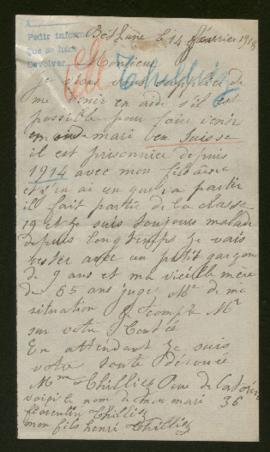 Pedir inform
que se hizo
Devolver
Béthune le 14 février 1918
Monsieur
Thilliez
je viens vous
me venir en aide s'il est
possible pour faire venir
mon mari en Suisse
il est prisonnier depuis
1914 avec mon fils aîné
et j'en ai un qui va partir
il fait partie de la classe
19 et je suis toujours malade
depuis longtemps je vais
rester avec un petit garçon
de 9 ans et ma vieille mère
de 65 ans jugez Mr de ma
situation je compte Mr
sur votre bontée
En attendant je suis
votre toute dévouée
Mme Thilliez Rue de
36
voici le nom de mon mari
florentin Thilliez
mon fils henri Thilliez